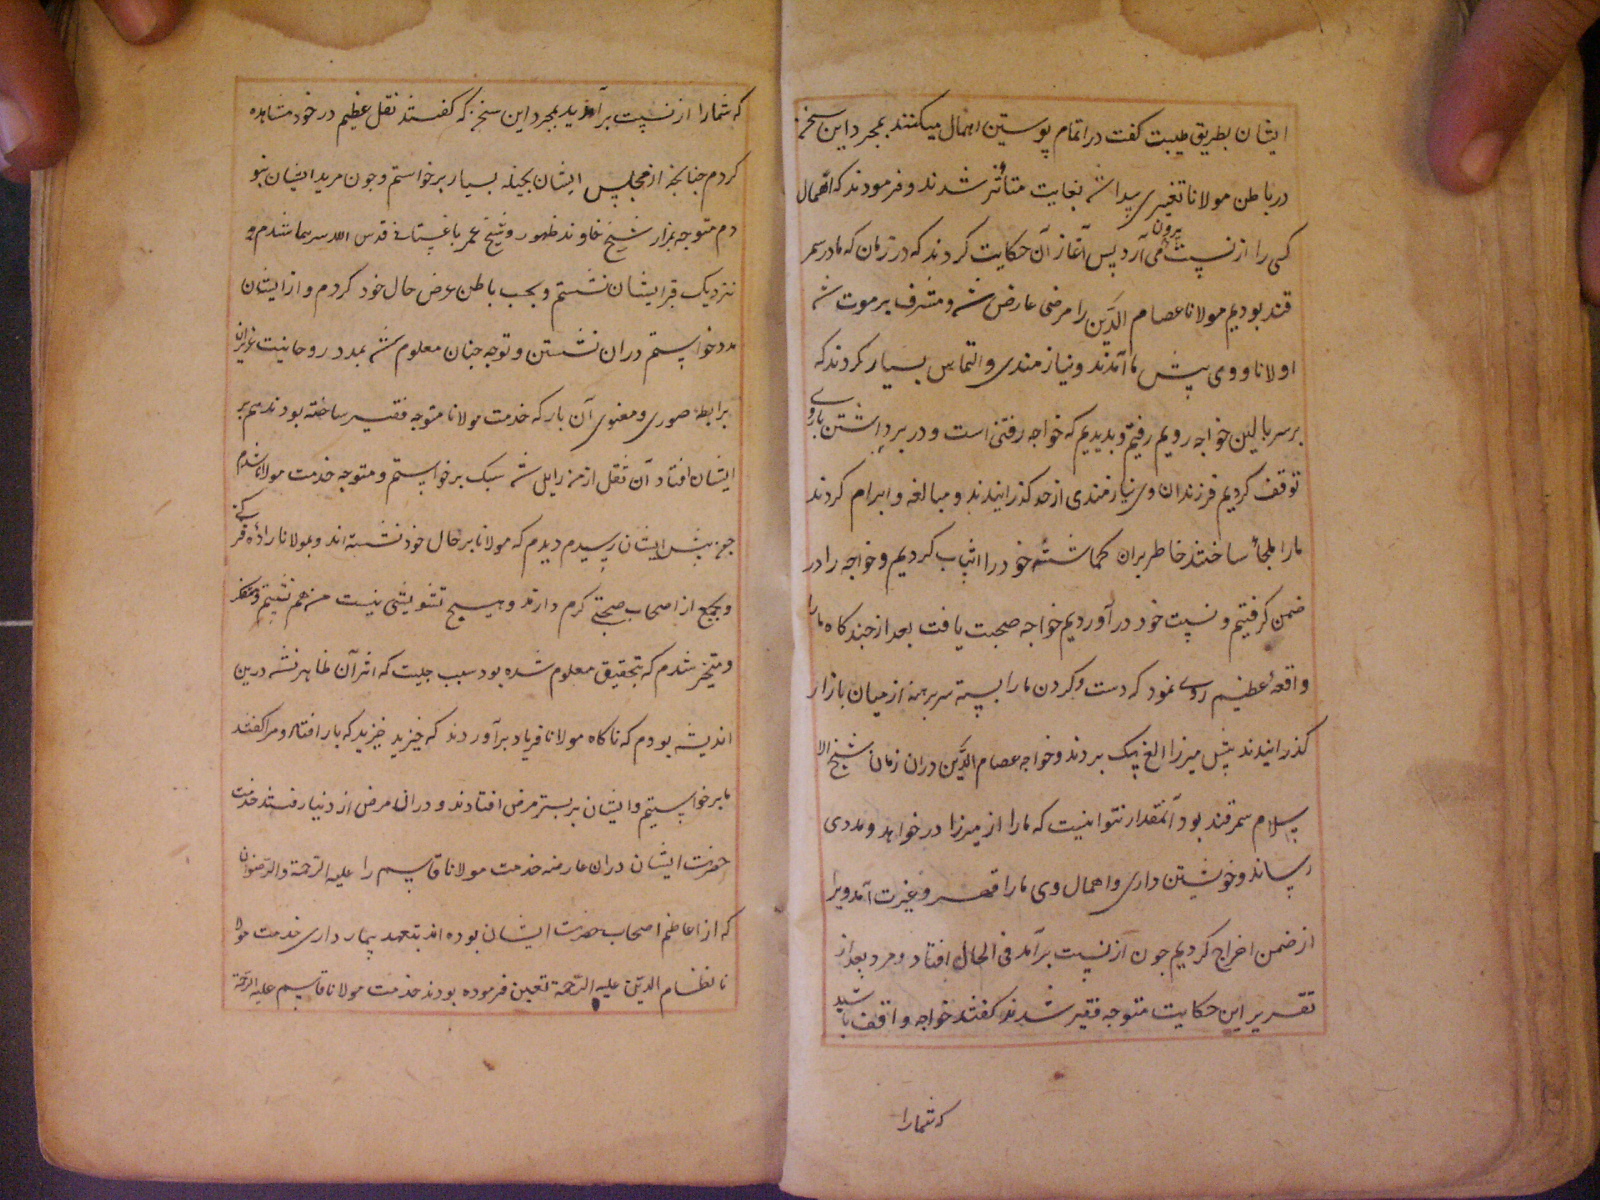 ایشان بطریق طیبت گفت در اتمام پوستین اهمال میکنند بمجرد این سخن
در باطن مولانا تغیری پیدا شد بغایت متأثر شدند و فرمودند که اهمال
کسی را از نسبت بیرون می آرد پس آغاز آن حکایت کردند که در زمان که ما در سمر
قند بودیم مولانا عصام الدین را مرضی عارض شد و مشرف بر موت شد
اولاد وی پیش ما آمدند و نیازمندی و التماس بسیار کردند که
بر سر بالین خواجه رویم رفتیم و بدیدیم که خواجه رفتنی است و در برداشتن بار وی
توقف کردیم فرزندان وی نیازمندی از حد گذرانیدند و مبالغه و ابرام کردند
ما را ملجأ ساختند خاطر بران گماشته خود را اثبات کردیم و خواجه را در
ضمن گرفتیم و نسبت خود در آوردیم خواجه صحت یافت بعد از چند گاه ما را
واقعه عظیم روی نمود که دست و گردن ما را بسته سر برهنه از میان بازار
گذرانیدند پیش میرزا الغ بیک بردند و خواجه عصام الدین دران زمان شیخ الا
سلام سمرقند بود آنمقدار نتوانست که ما را از میرزا در خواهد و مددی
رساند و خویشتن داری و اهمال وی ما را قهر و غیرت آمد ویرا
از ضمن اخراج کردیم چون از نسبت برآمد فی الحال افتاد و مرد بعد از
تقریر این حکایت متوجه فقیر شدند گفتند خواجه واقف باشید
که شما را
که شما را از نسبت برآوردید بمجرد این سخن که گفتند ثقل عظیم در خود مشاهده
کردم چنانچه از مجلس ایشان بحیله بسیار برخواستم و چون مرید ایشان نبو
دم متوجه مزار شیخ خاوند ظهور و شیخ عمر باغستانی قدس الله سرهما شدم و
نزدیک قبر ایشان نشستم و بحسب باطن عرض حال خود کردم و از ایشان
مدد خواستم دران نشستن و توجه چنان معلوم شد بمدد روحانیت عزیزان
برابطه صوری و معنوی آن بار که خدمت مولانا متوجه فقیر ساخته بودند هم بر
ایشان افتاد آن ثقل از من زایل شد سبک برخواستم و متوجه خدمت مولانا شدم
چون پیش ایشان رسیدم دیدم که مولانا بر حال خود نشسته اند و مولانا زاده فرکنی
و جمعی از اصحاب صحبتی گرم دارند و هیچ تشویشی نیست من هم نشستم و متفکر
و متحیر شدم که بتحقیق معلوم شده بود سبب چیست که اثر آن ظاهر نشد درین
اندیشه بودم که ناگاه مولانا فریاد برآوردند که خیزید خیزید که بار افتاد و مرا گفتند
ما برخواستیم و ایشان بر بستر مرض افتادند و دران مرض از دنیا رفتند خدمت
حضرت ایشان دران عارضه خدمت مولانا قاسم را علیه الرحمة والرضوان
که از اعاظم اصحاب حضرت ایشان بوده اند بتعهد بیمار داری خدمت مولا
نا نظام الدین علیه الرحمة تعیین فرموده بودند خدمت مولانا قاسم علیه الرحمة